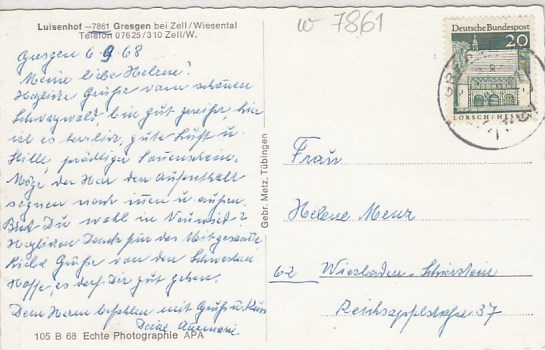 Luisenhof – 7861 Gresgen bei Zell/Wiesental
Telefon 07625/310 Zell/W.
w 7861
Deutsche Bundespost
20
LORSCH/HESSEN
Gresgen 6 9. 68
Meine liebe Helene!
Herzliche Grüße vom schönen
Schwarzwald, bin gut gereist, hier
ist es herrlich, gute Luft u.
Stille, prächtiger Sonnenschein.
Möge der Herr den Aufenthalt
segnen nach innen u. außen.
Bist Du wohl in Neuwied?
Herzlichen Dank für das Mitgesandte
Grüße von den Schwestern
Hoffe, es darf Dir gut gehen.
Dem Herrn befohlen mit Gruß u. Kuss
Deine Annemarie
Gebr. Metz, Tübingen
Frau
Helene Menz
62 Wiesbaden-Schierstein
Reichsapfelstraße 37
105 B 68 Echte Photographie APA